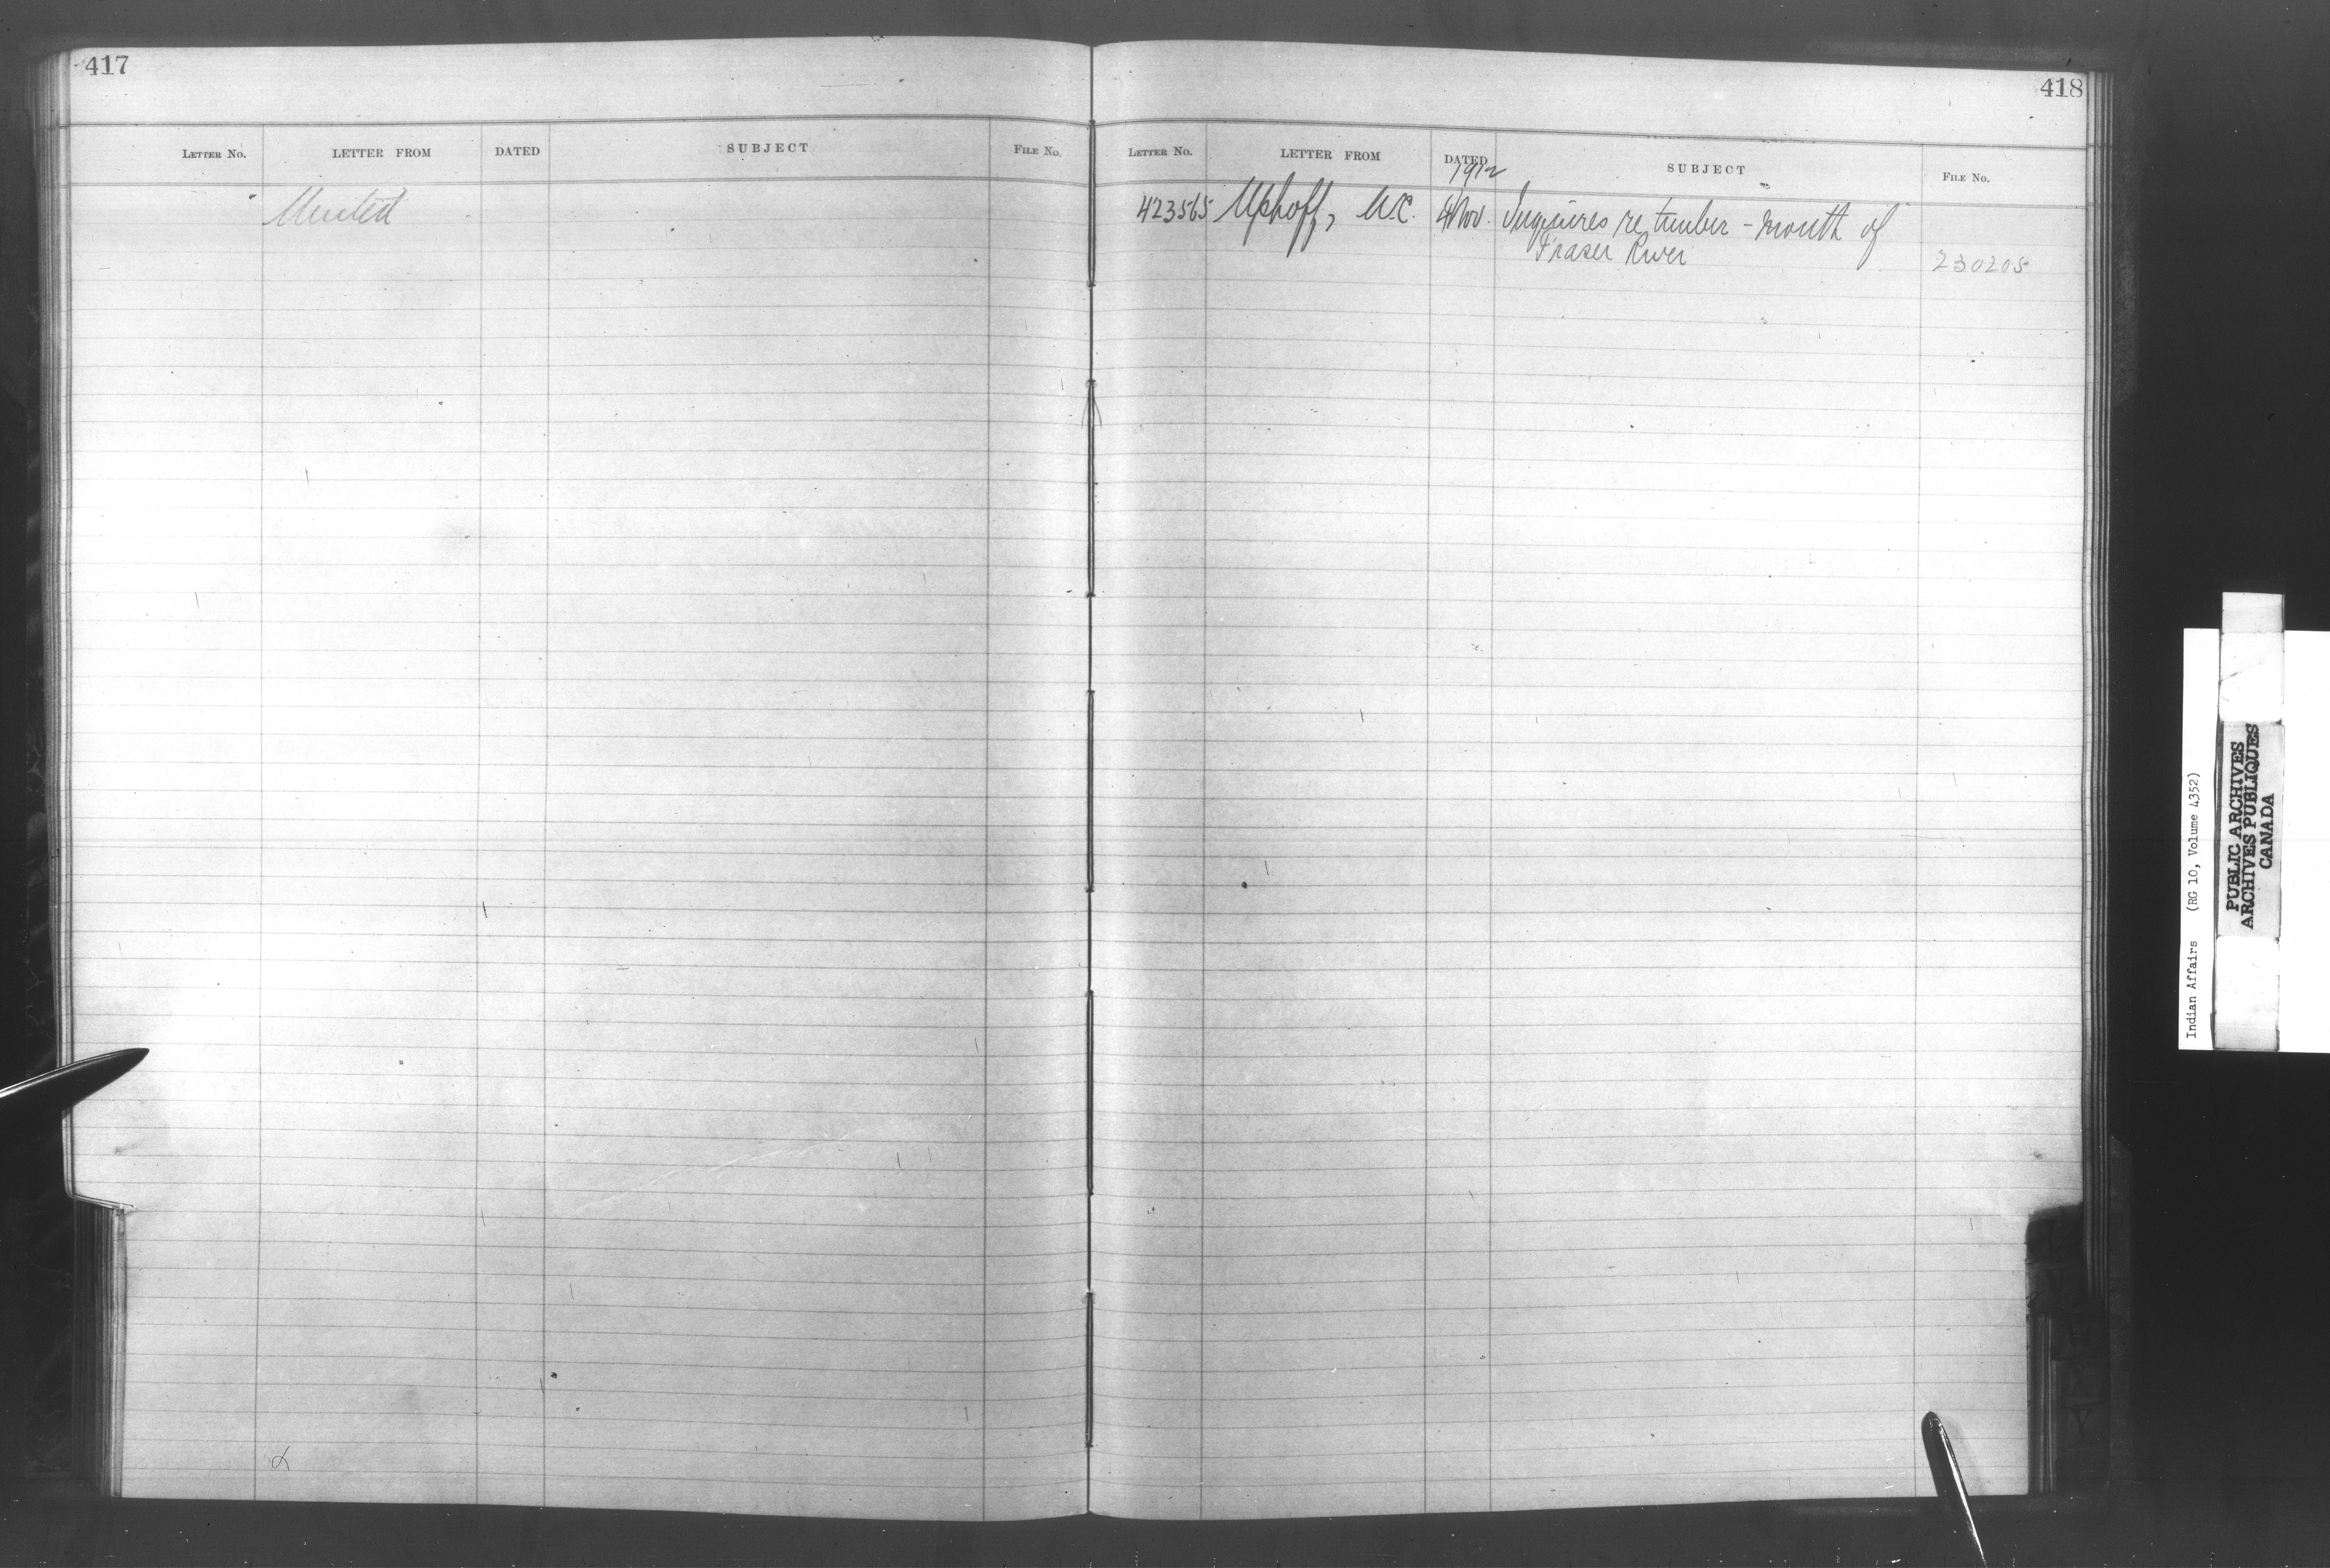 417
LETTER NO. LETTER FROM DATED SUBJECT FILE NO.
United
418
LETTER NO. LETTER FROM DATED SUBJECT FILE NO.
1912
423565 Uphoff, W.C. 4 Nov. Inquires re timber - mouth of
Fraser River
230205
Indian Affairs (RG 10, Volume 4352)
PUBLIC ARCHIVES
ARCHIVES PUBLIQUES
CANADA